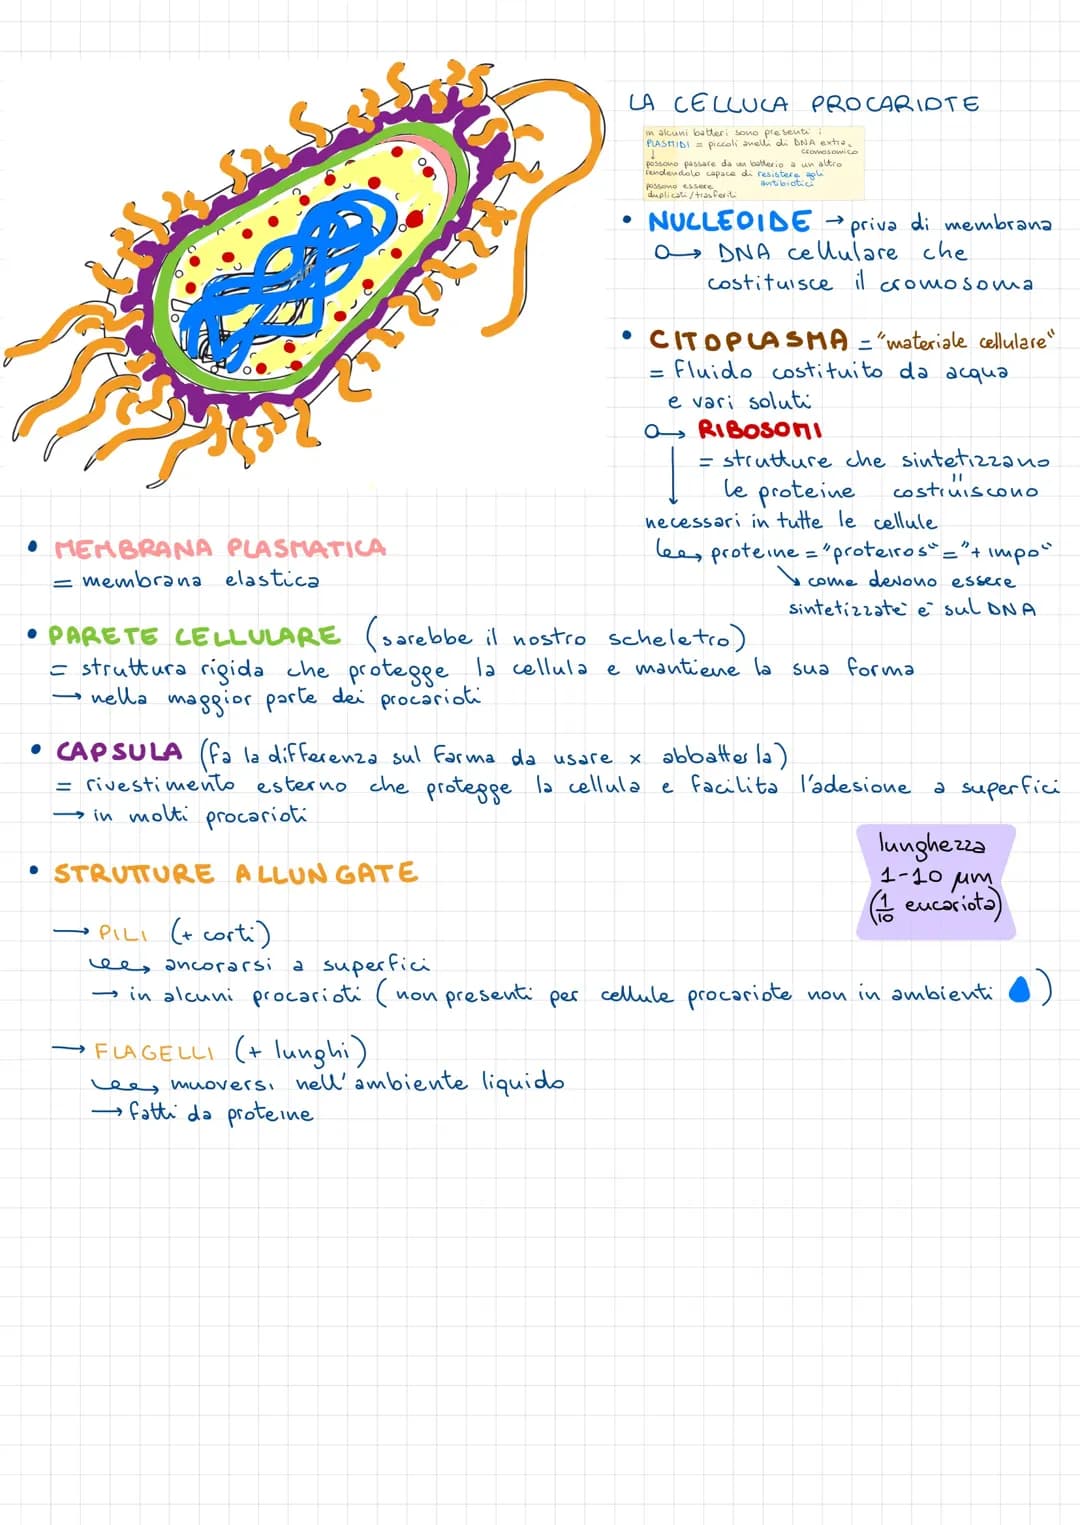 LA CELLULA PROCARIOTE
in alcuni batteri sono presenti i
PLASMIDI = piccoli anelli di DNA extra
cromosomico
↓
possono passare da un batterio a un altro
rendendolo capace di resistere agli
antibiotici
possono essere
duplicati/trasferiti
• NUCLEOIDE → priva di membrana
→ DNA cellulare che
costituisce il cromosoma
• CITOPLASMA = "materiale cellulare"
= fluido costituito da acqua
e vari soluti
→ RIBOSOMI
= strutture che sintetizzano
"
le proteine costruiscono
necessari in tutte le cellule
→ proteine = "proteiros" = "+ impo"
↘ come devono essere
sintetizzate è sul DNA
• MEMBRANA PLASMATICA
= membrana elastica
• PARETE CELLULARE (sarebbe il nostro scheletro)
= struttura rigida che protegge la cellula e mantiene la sua forma
→ nella maggior parte dei procarioti
• CAPSULA (fa la differenza sul farma da usare x abbatterla)
= rivestimento esterno che protegge la cellula e facilita l'adesione a superfici
→ in molti procarioti
lunghezza
1-10 μm
(1/10 eucariota)
• STRUTTURE ALLUNGATE
→ PILI (+ corti)
→ ancorarsi a superfici
→ in alcuni procarioti (non presenti per cellule procariote non in ambienti 💧)
→ FLAGELLI (+ lunghi)
→ muoversi nell'ambiente liquido
→ fatti da proteine